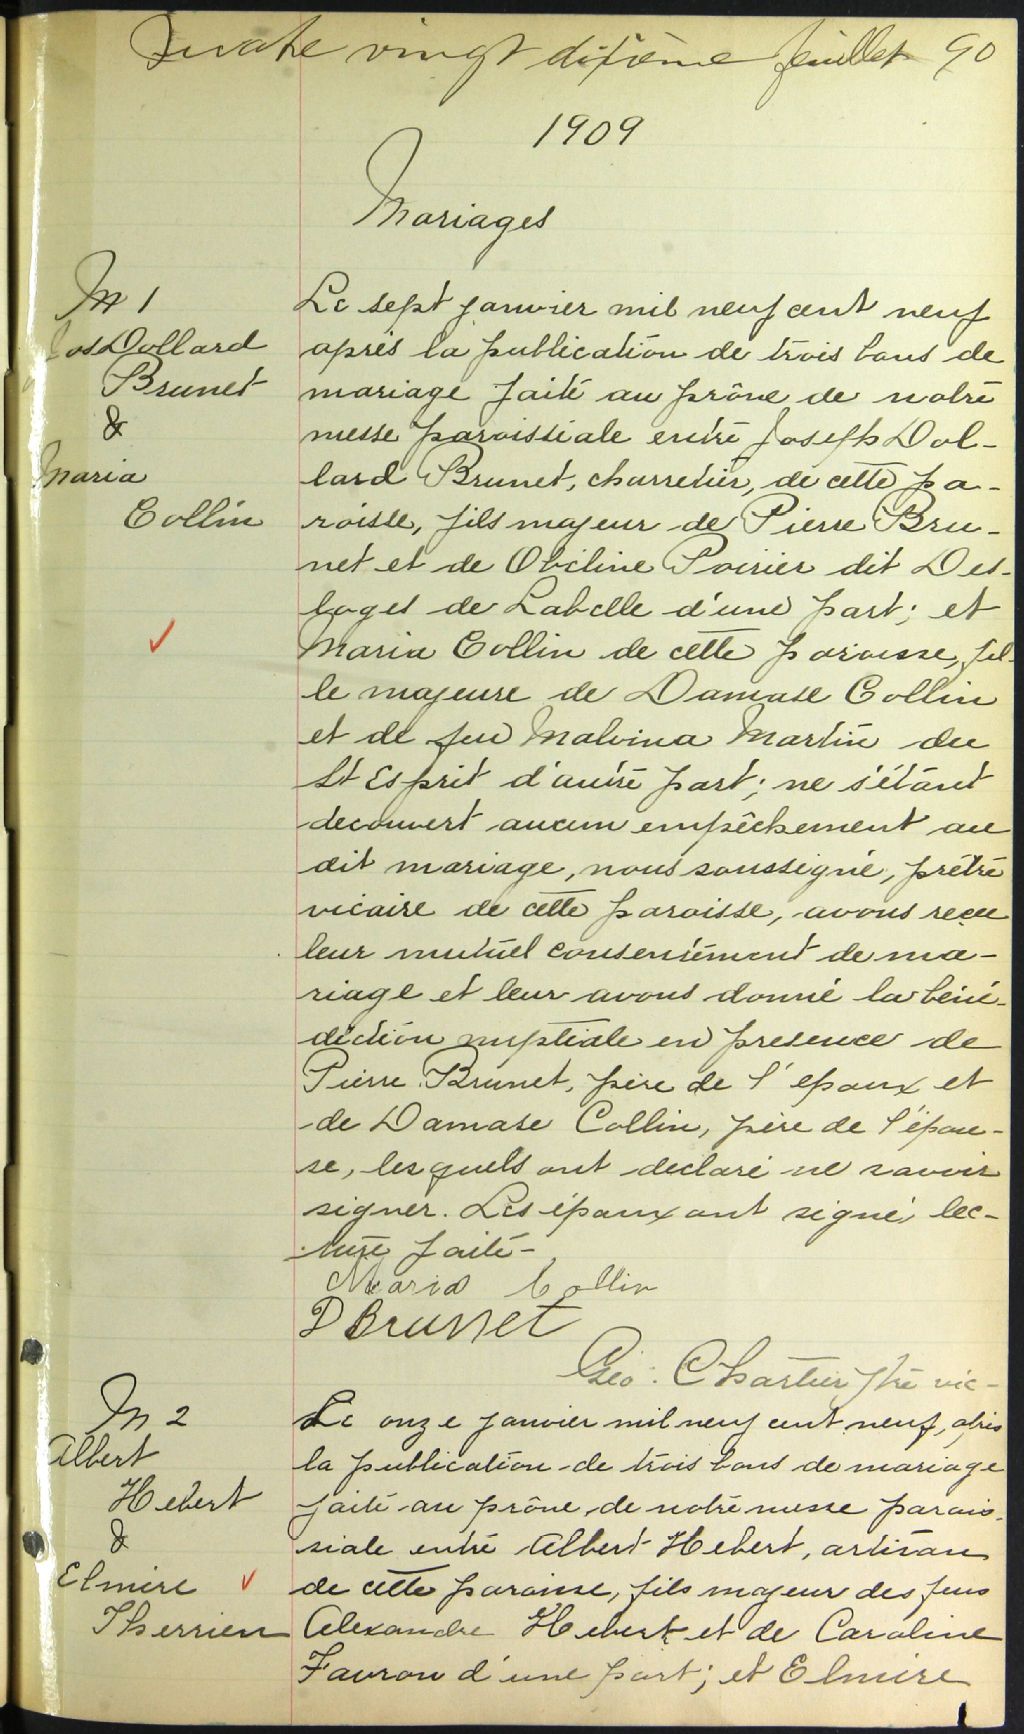 Quatre vingt dixième feuillet 90
1909
Mariages
M 1
Jos Dollard
Brunet
&
Maria
Collin
Le sept janvier mil neuf cent neuf
après la publication de trois bans de
mariage faite au prône de notre
messe paroissiale entre Joseph Dol-
lard Brunet, charretier, de cette pa-
roisse, fils majeur de Pierre Bru-
net et de Obeline Poirier dit Des-
loges de Labelle d'une part; et
Maria Collin de cette paroisse, fil-
le majeure de Damase Collin
et de feu Malvina Martin du
St Esprit d'autre part; ne s'étant
decouvert aucun empêchement au
dit mariage, nous soussigné, prêtre
vicaire de cette paroisse, avons reçu
leur mutuel consentement de ma-
riage et leur avons donné la béné-
diction nuptiale en presence de
Pierre Brunet, père de l'epoux et
de Damase Collin, père de l'épou-
se, lesquels ont declaré ne savoir
signer. Les époux ont signé, lec-
ture faite-
Maria Collin
D Brunet
Geo: Chartier ptre vic-
M 2
Albert
Hebert
&
Elmire
Therrien
Le onze janvier mil neuf cent neuf, après
la publication de trois bans de mariage
faite au prône de notre messe parois-
siale entre Albert Hebert, artisan
de cette paroisse, fils majeur des feus
Alexandre Hebert et de Caroline
Favron d'une part; et Elmire